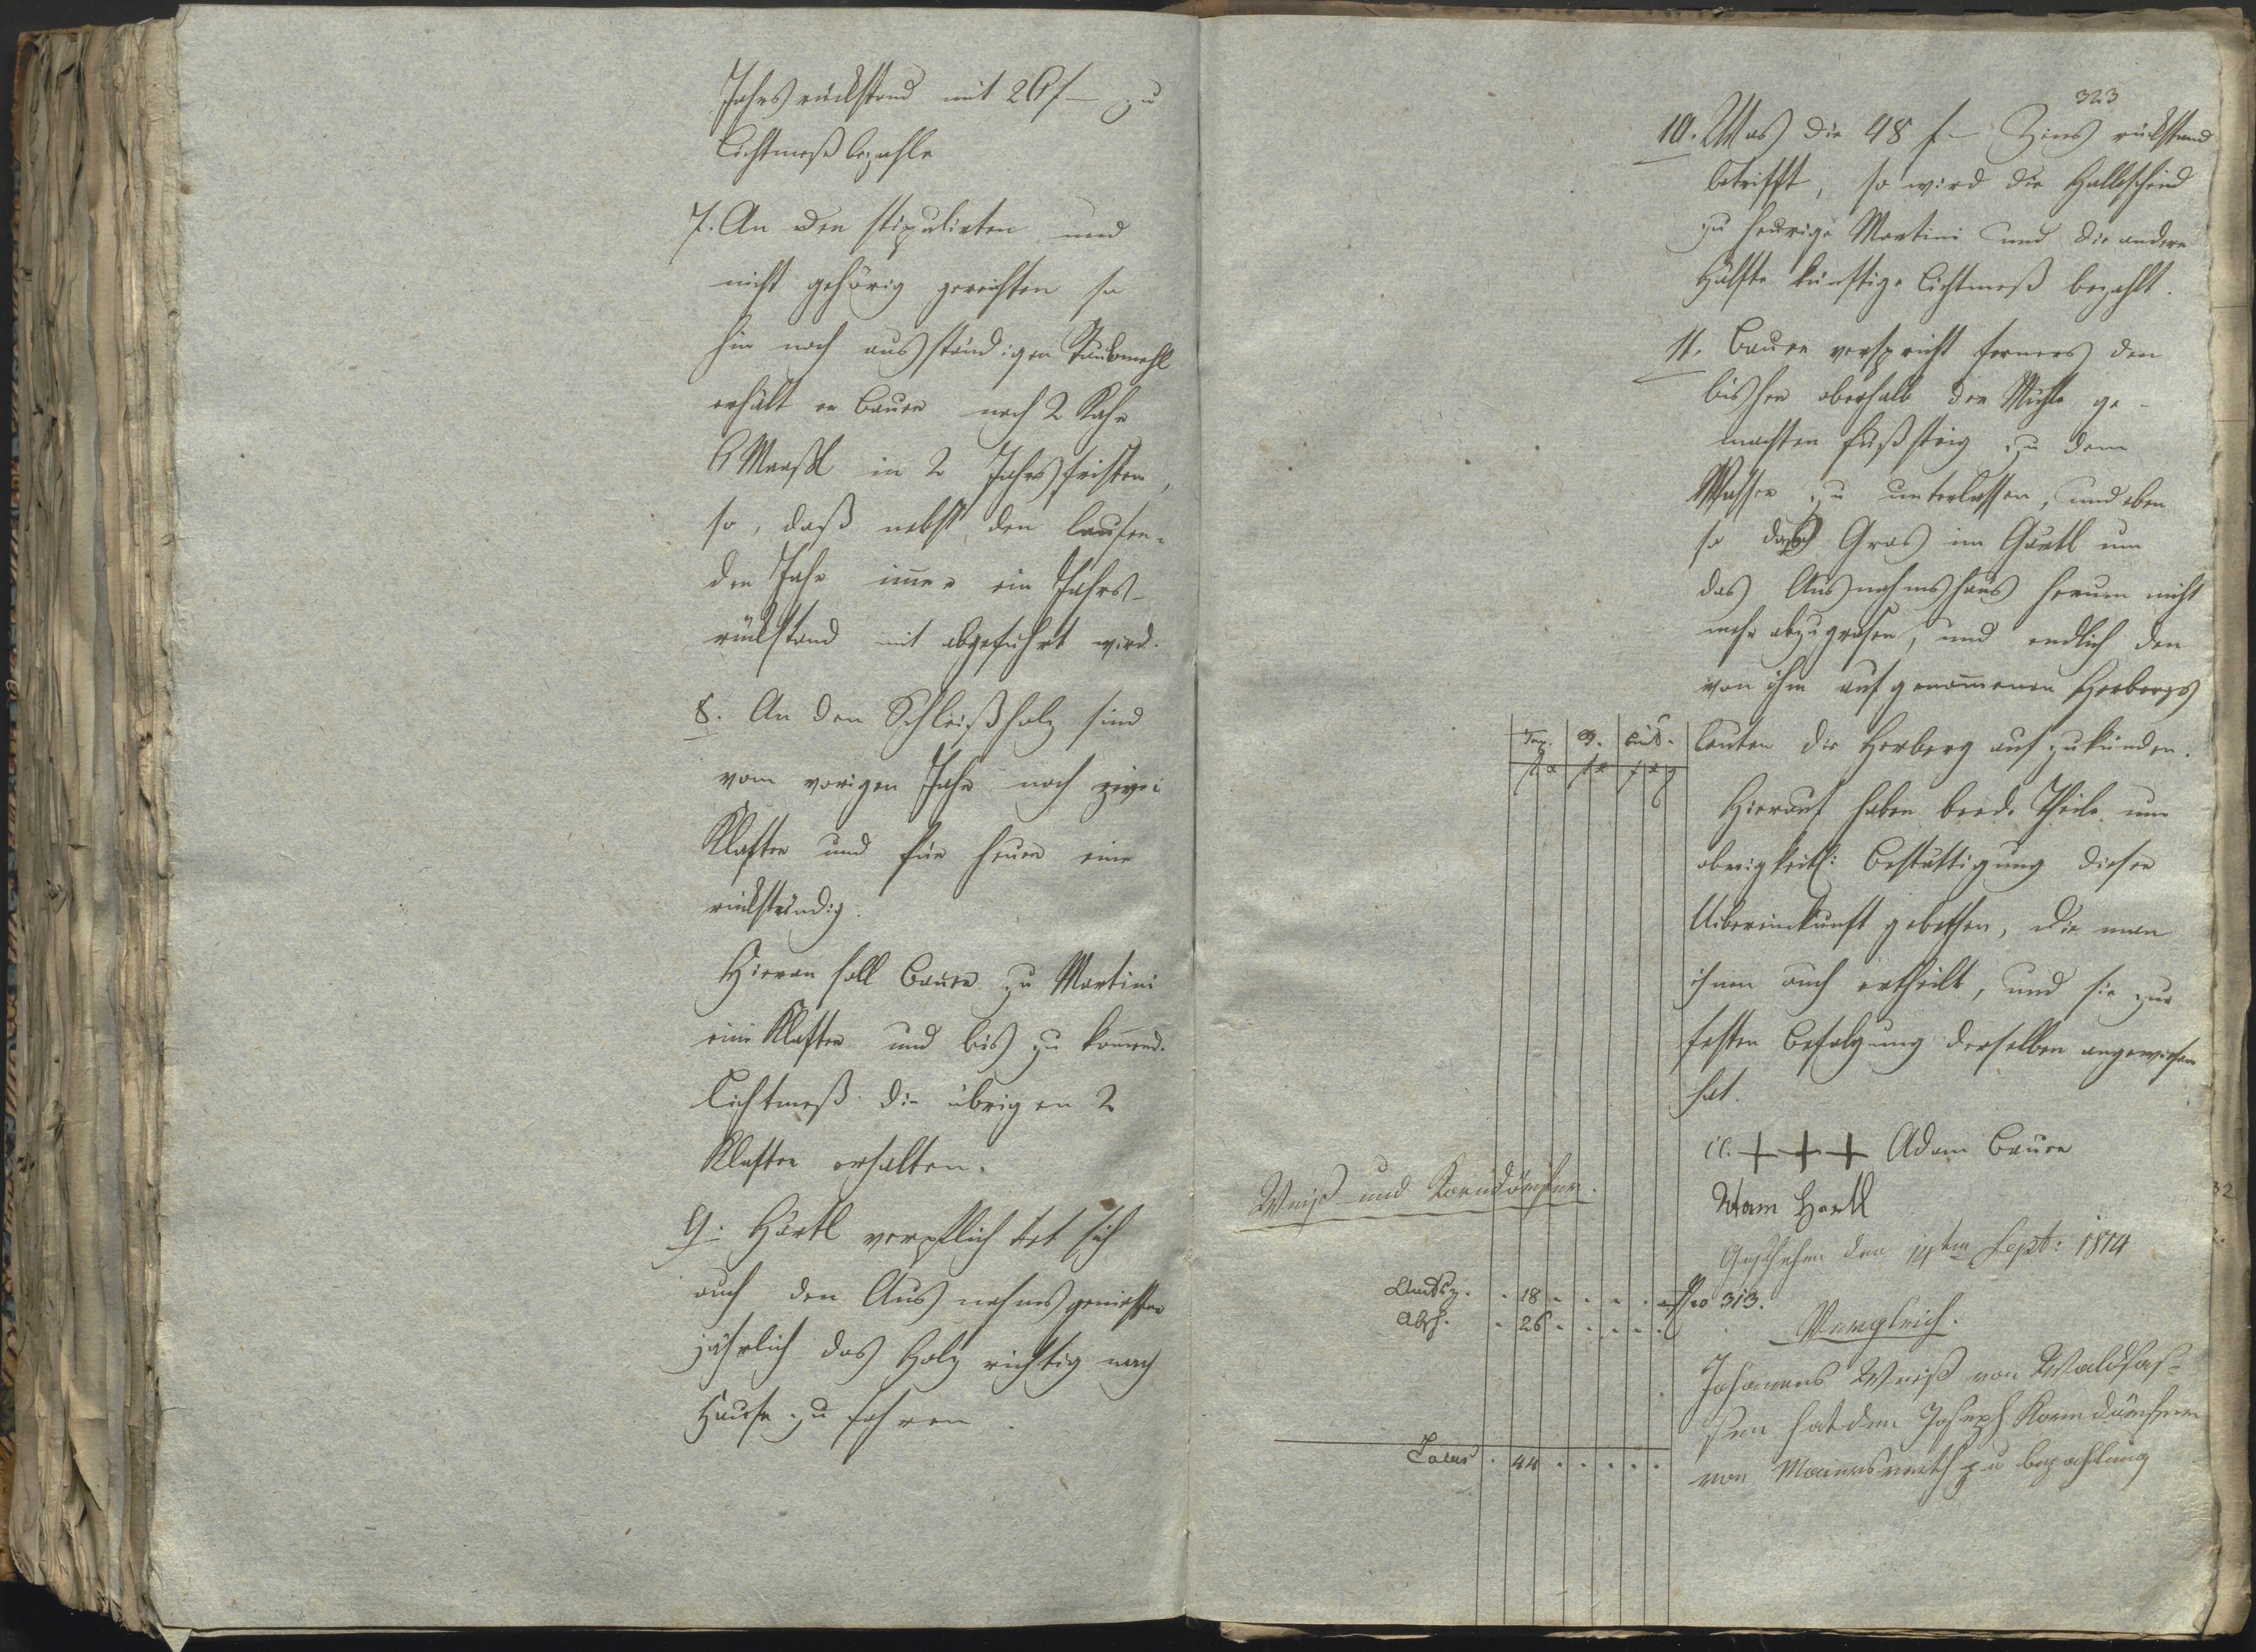 Jahrsrückstand mit 20 f – zu
Lichtmeß bezahle
7. An den stipulirten und
nicht gehörig gereichten so
hin noch ausständigen Staubmehl
erhält er Bauer noch 2 Kahr
6 Maaßl in 2 Jahrsfristen,
so, daß nebst den laufen-
den Jahr immer ein Jahrs-
rückstand mit abgeführt wird.
8. An den Schleißholz sind
vom vorigen Jahr noch zwei
Klafter und für heuer eine
rückständig.
Hieran soll Bauer zu Martini
eine Klafter und bis zu kommend.
Lichtmeß die übrigen 2
Klafter erhalten.
9. Härtl verpflichtet sich
auch den Ausnahmsgenießer
jährlich das Holz richtig nach
Hause zu fahren.
323
10. Was die 48 f – Zins rückstand
betrifft, so wird die Halbscheid
zu heurige Martini und die andere
Hälfte künftige Lichtmeß bezahlt.
11. Bauer verspricht ferners den
bisher oberhalb der Mühle ge-
machten Fußsteig zu dem
Wasser zu unterlassen, und eben
so das Gras im Gärtl um
das Ausnahmshaus herum nicht
mehr abzugrasen, und endlich den
von ihm aufgenommenen Herbergs
leuten die Herberg aufzukünden.
Hierauf haben beede Theile um
obrigkeitl: Bestättigung dieser
Uibereinkunft gebethen, die man
ihnen auch ertheilt, und sie zur
festen Befolgung derselben angewiesen
hat.
+ + + Adam Bauer
Adam Hartl
Geschehen den 14ten Sept: 1814
Weiß und Korndörfer.
Tax.
Amtsz. 18
Abs. 26
Latus 44
Nro 313.
Vergleich.
Johannes Weiß von Waldsas-
sen hat dem Joseph Korndörfer
von Maiersreith zu bezahlung